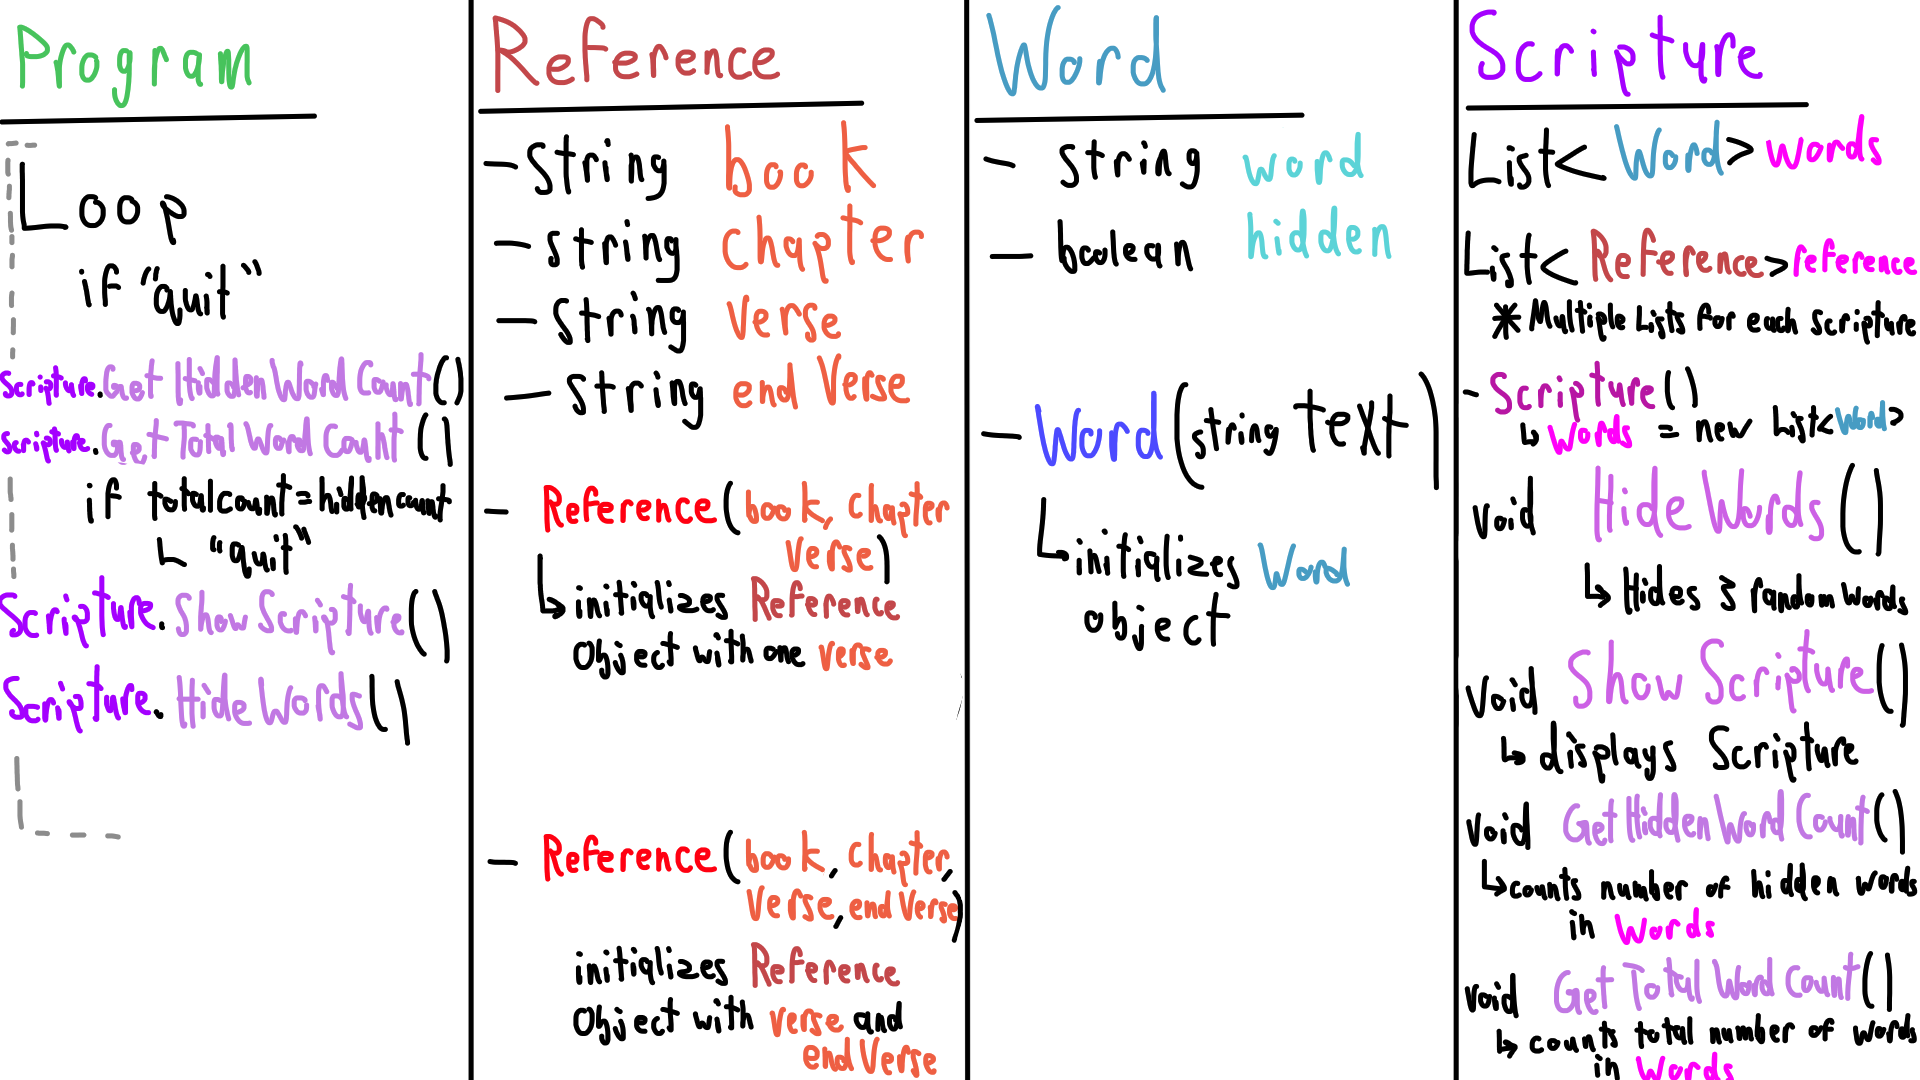 Program
Loop
if "quit"
Scripture.Get Hidden Word Count()
Scripture.Get Total Word Count()
if totalcount = hiddencount
"quit"
Scripture.Show Scripture()
Scripture.Hide Words()
Reference
- string book
- string chapter
- string verse
- string end Verse
- Reference(book, chapter
verse)
initializes Reference
Object with one verse
- Reference(book, chapter,
verse, end Verse)
initializes Reference
Object with verse and
end Verse
Word
- string word
- boolean hidden
- Word(string text)
initializes Word
object
Scripture
List<Word> words
List<Reference> reference
* Multiple Lists for each scripture
- Scripture()
words = new List<Word>
void Hide Words()
Hides 3 random words
void Show Scripture()
displays Scripture
void Get Hidden Word Count()
counts number of hidden words
in words
void Get Total Word Count()
counts total number of words
in words